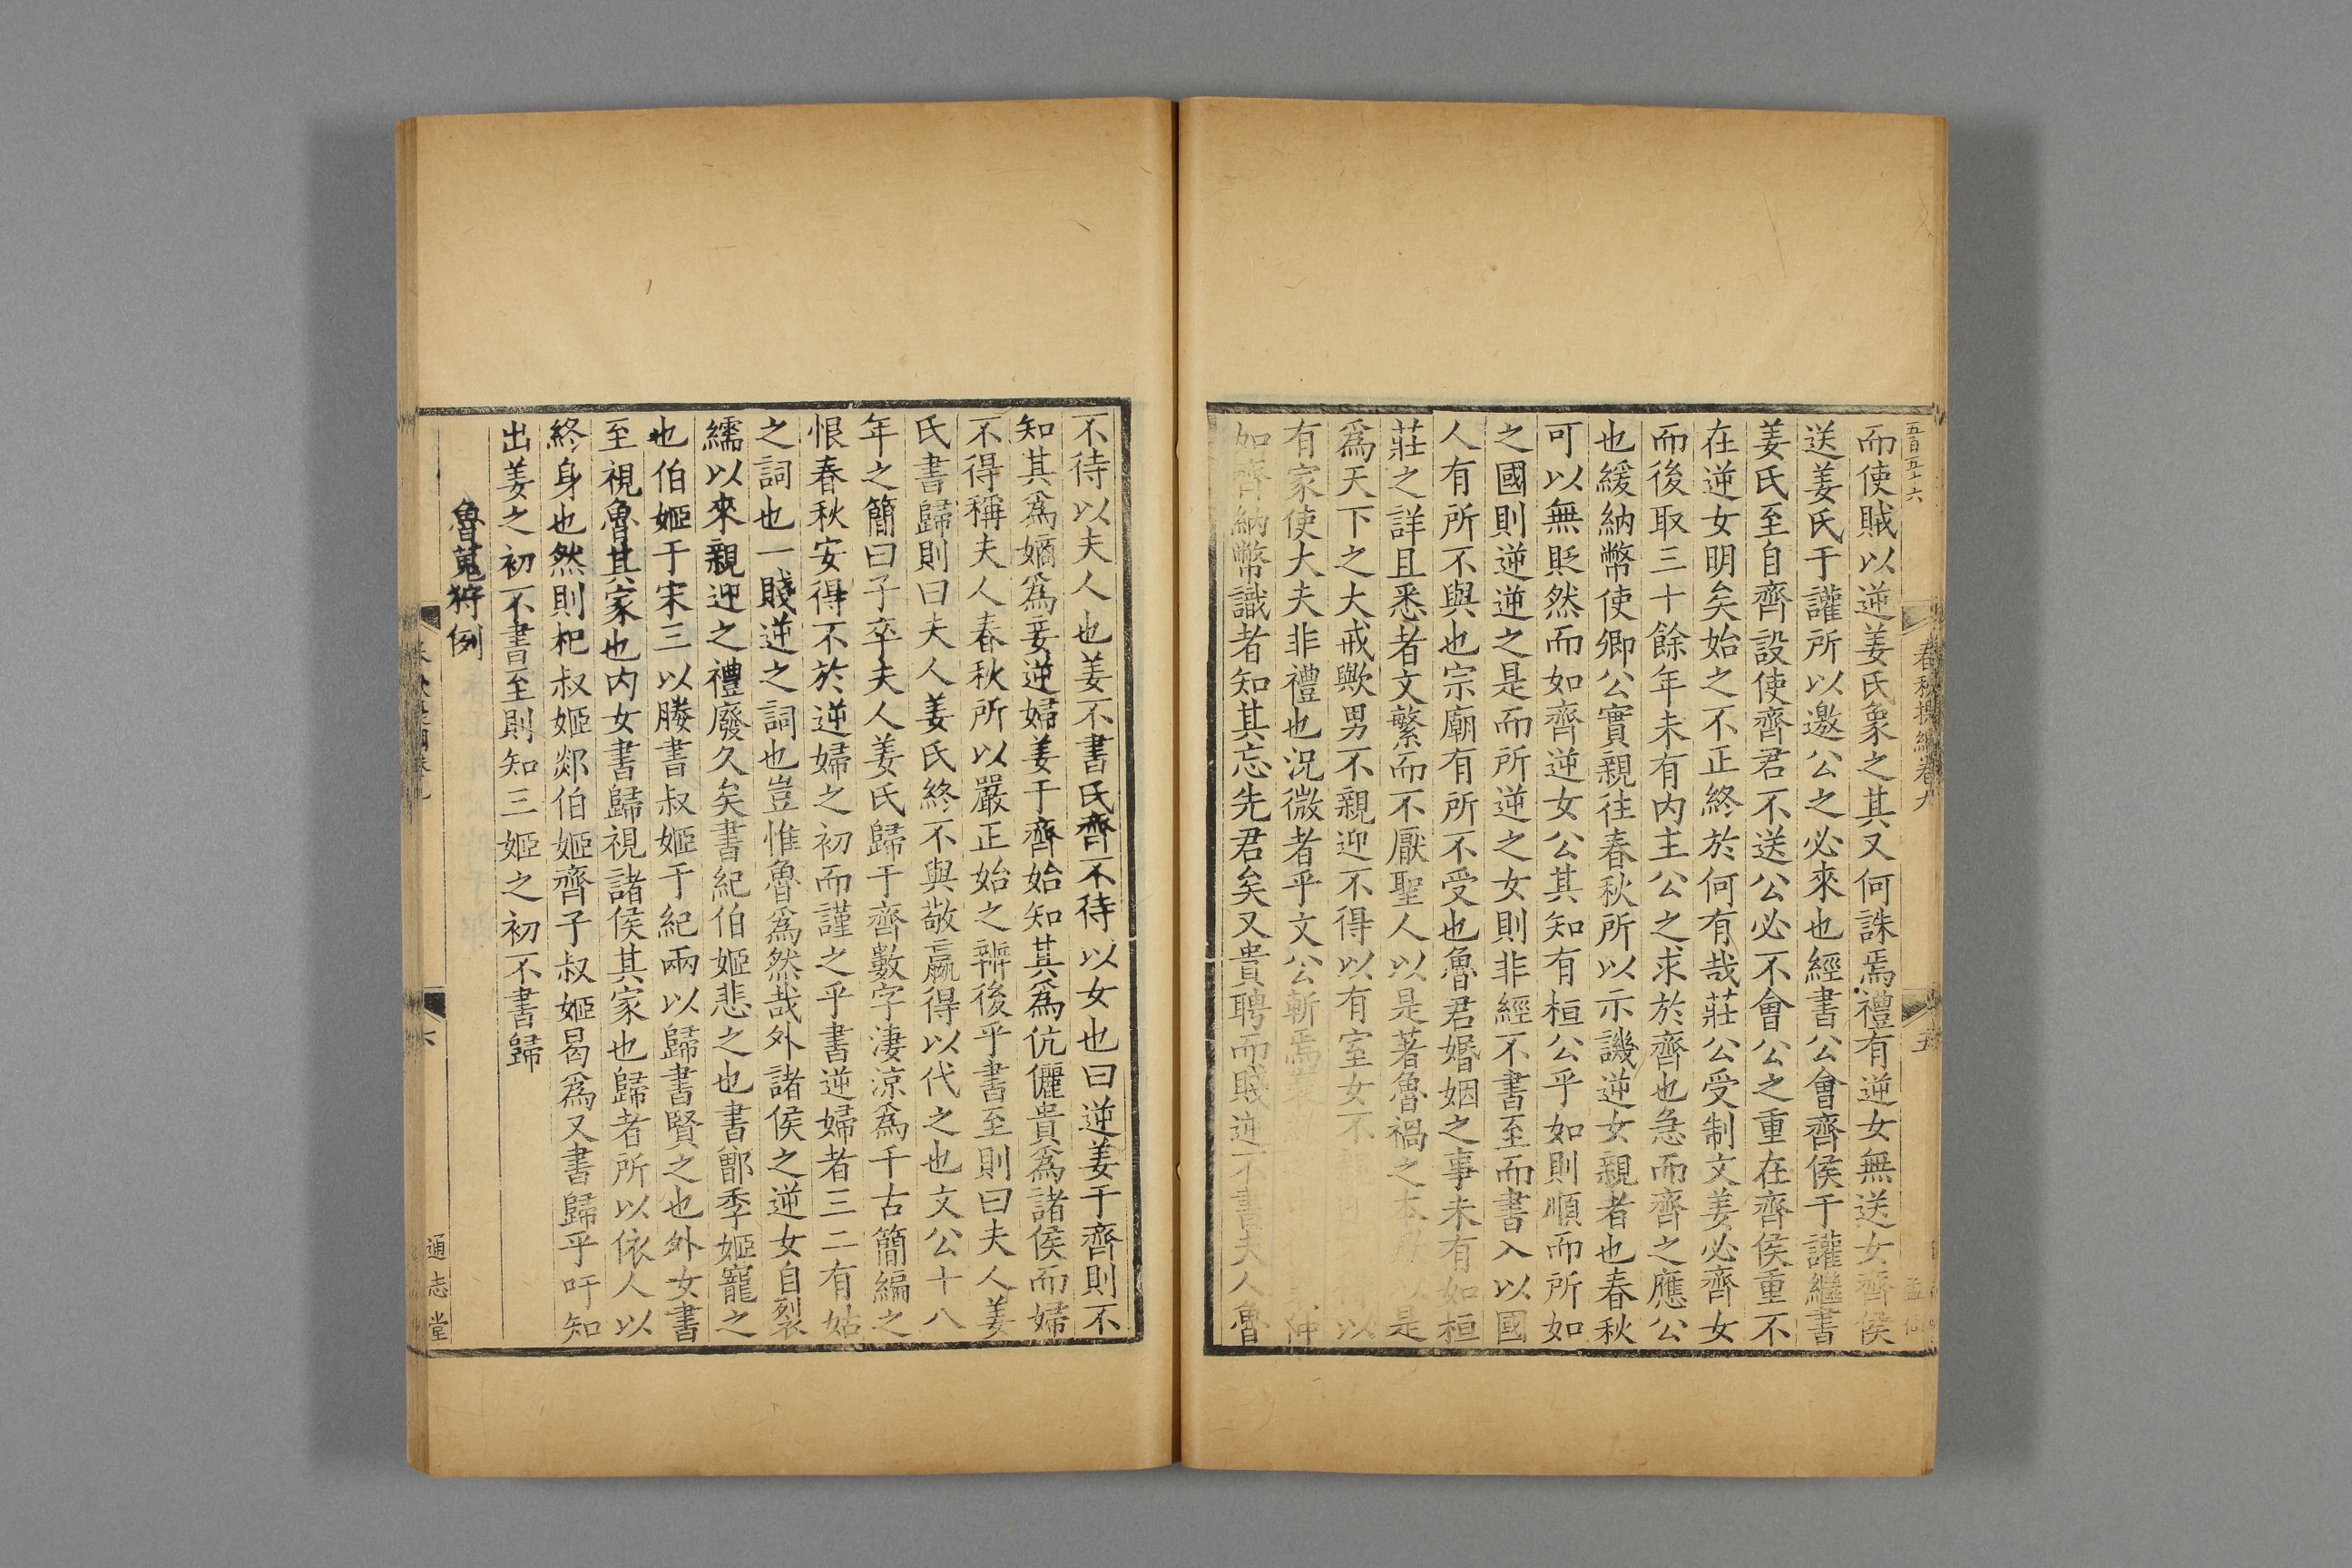 五百五十六
春秋提綱卷九
五
而使賊以逆姜氏象之其又何誅焉禮有逆女無送女齊侯
送姜氏于讙所以邀公之必來也經書公會齊侯于讙繼書
姜氏至自齊設使齊君不送公必不會公之重在齊侯重不
在逆女明矣始之不正終於何有哉莊公受制文姜必齊女
而後取三十餘年未有内主公之求於齊也急而齊之應公
也緩納幣使卿公實親往春秋所以示譏逆女親者也春秋
可以無貶然而如齊逆女公其知有桓公乎如則順而所如
之國則逆逆之是而所逆之女則非經不書至而書入以國
人有所不與也宗廟有所不受也魯君婚姻之事未有如桓
莊之詳且悉者文繁而不厭聖人以是著魯禍之本 是
爲天下之大戒歟男不親迎不得以有室女不 以
有家使大夫非禮也况微者乎文公斬焉 仲
如齊納幣識者知其忘先君矣又貴聘而賤逆不書夫人魯
不待以夫人也姜不書氏齊不待以女也曰逆姜于齊則不
知其爲嫡爲妾逆婦姜于齊始知其爲伉儷貴爲諸侯而婦
不得稱夫人春秋所以嚴正始之辨後乎書至則曰夫人姜
氏書歸則曰夫人姜氏終不與敬嬴得以代之也文公十八
年之簡曰子卒夫人姜氏歸于齊數字淒涼爲千古簡編之
恨春秋安得不於逆婦之初而謹之乎書逆婦者三二有姑
之詞也一賤逆之詞也豈惟魯爲然哉外諸侯之逆女自裂
繻以來親迎之禮廢久矣書紀伯姬悲之也書鄫季姬寵之
也伯姬于宋三以媵書叔姬于紀兩以歸書賢之也外女書
至視魯其家也内女書歸視諸侯其家也歸者所以依人以
終身也然則杞叔姬郯伯姬齊子叔姬曷爲又書歸乎吁知
出姜之初不書至則知三姬之初不書歸
魯蒐狩例
六
通志堂